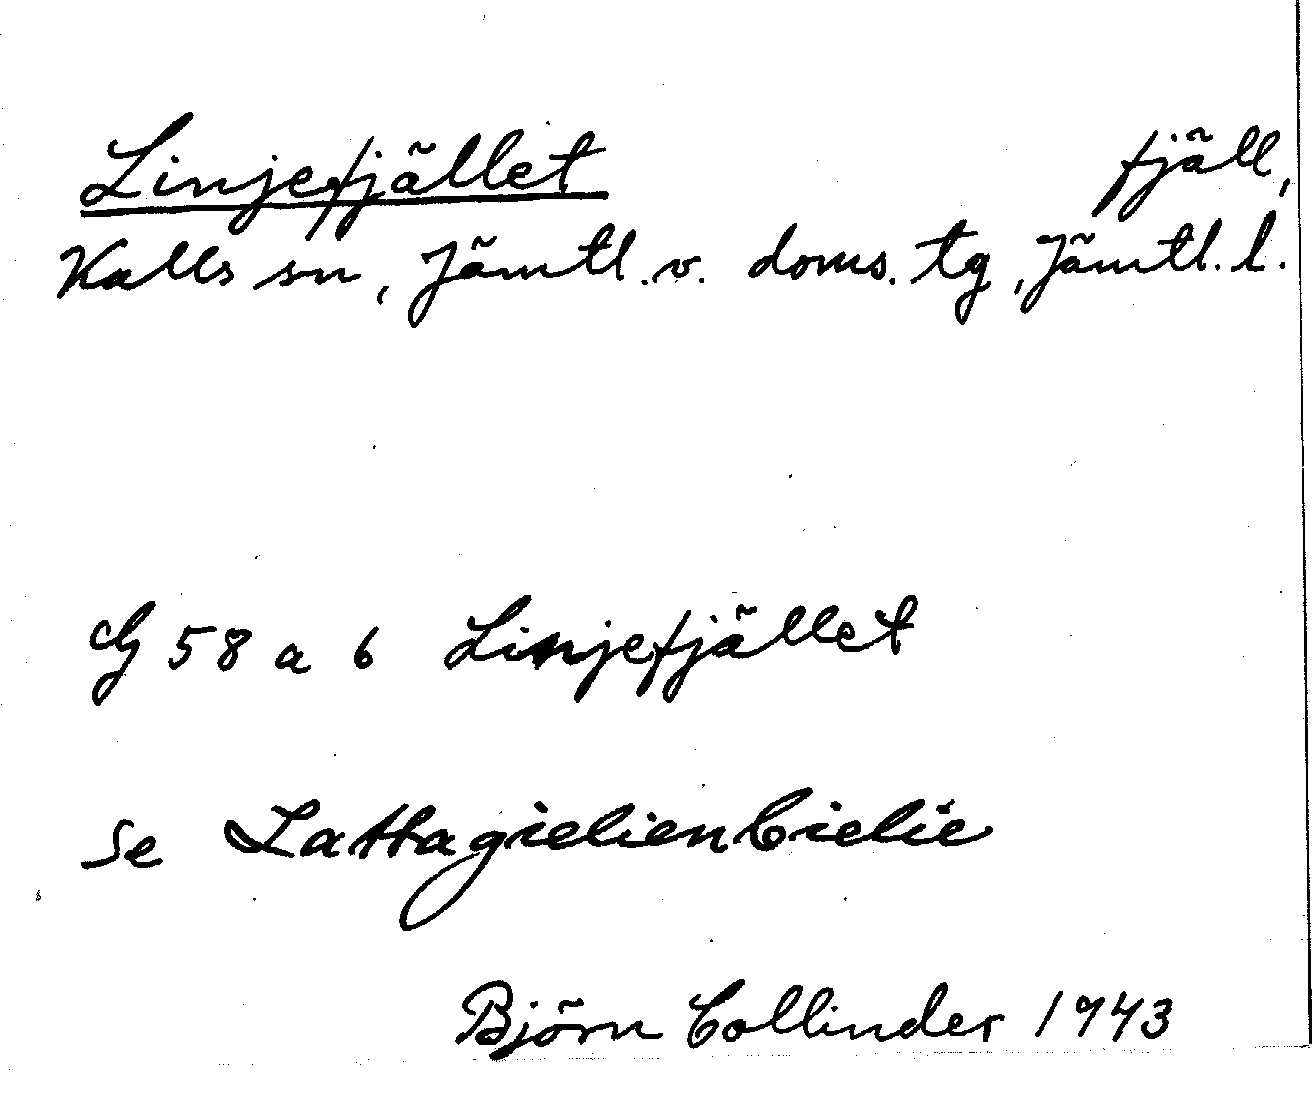 Linjefjället fjäll,
Kalls sn, Jämtl. v. doms. tg, Jämtl. l.
G 58 a 6 Linjefjället
se Lattagielienbielie
Björn Collinder 1943